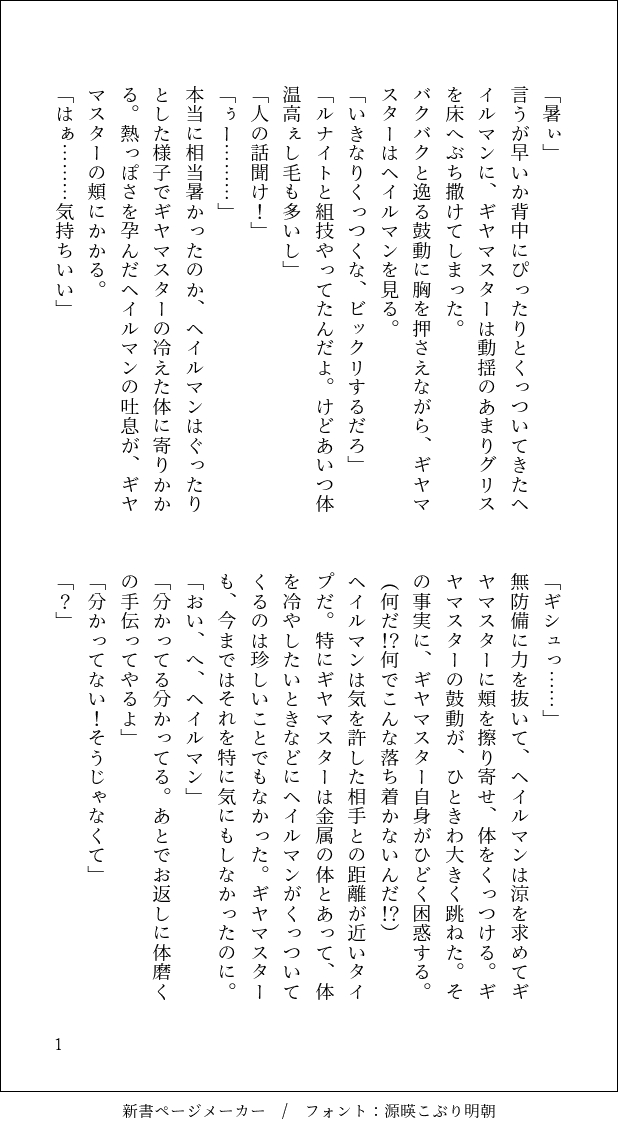 「暑ぃ」
言うが早いか背中にぴったりとくっついてきたヘ
イルマンに、ギヤマスターは動揺のあまりグリス
を床へぶち撒けてしまった。
バクバクと逸る鼓動に胸を押さえながら、ギヤマ
スターはヘイルマンを見る。
「いきなりくっつくな、ビックリするだろ」
「ルナイトと組技やってたんだよ。けどあいつ体
温高ぇし毛も多いし」
「人の話聞け！」
「ぅー………」
本当に相当暑かったのか、ヘイルマンはぐったり
とした様子でギヤマスターの冷えた体に寄りかか
る。熱っぽさを孕んだヘイルマンの吐息が、ギヤ
マスターの頬にかかる。
「はぁ………気持ちいい」
「ギシュっ……」
無防備に力を抜いて、ヘイルマンは涼を求めてギ
ヤマスターに頬を擦り寄せ、体をくっつける。ギ
ヤマスターの鼓動が、ひときわ大きく跳ねた。そ
の事実に、ギヤマスター自身がひどく困惑する。
(何だ!?何でこんな落ち着かないんだ!?)
ヘイルマンは気を許した相手との距離が近いタイ
プだ。特にギヤマスターは金属の体とあって、体
を冷やしたいときなどにヘイルマンがくっついて
くるのは珍しいことでもなかった。ギヤマスター
も、今まではそれを特に気にもしなかったのに。
「おい、へ、ヘイルマン」
「分かってる分かってる。あとでお返しに体磨く
の手伝ってやるよ」
「分かってない！そうじゃなくて」
「？」
1
新書ページメーカー / フォント：源暎こぶり明朝